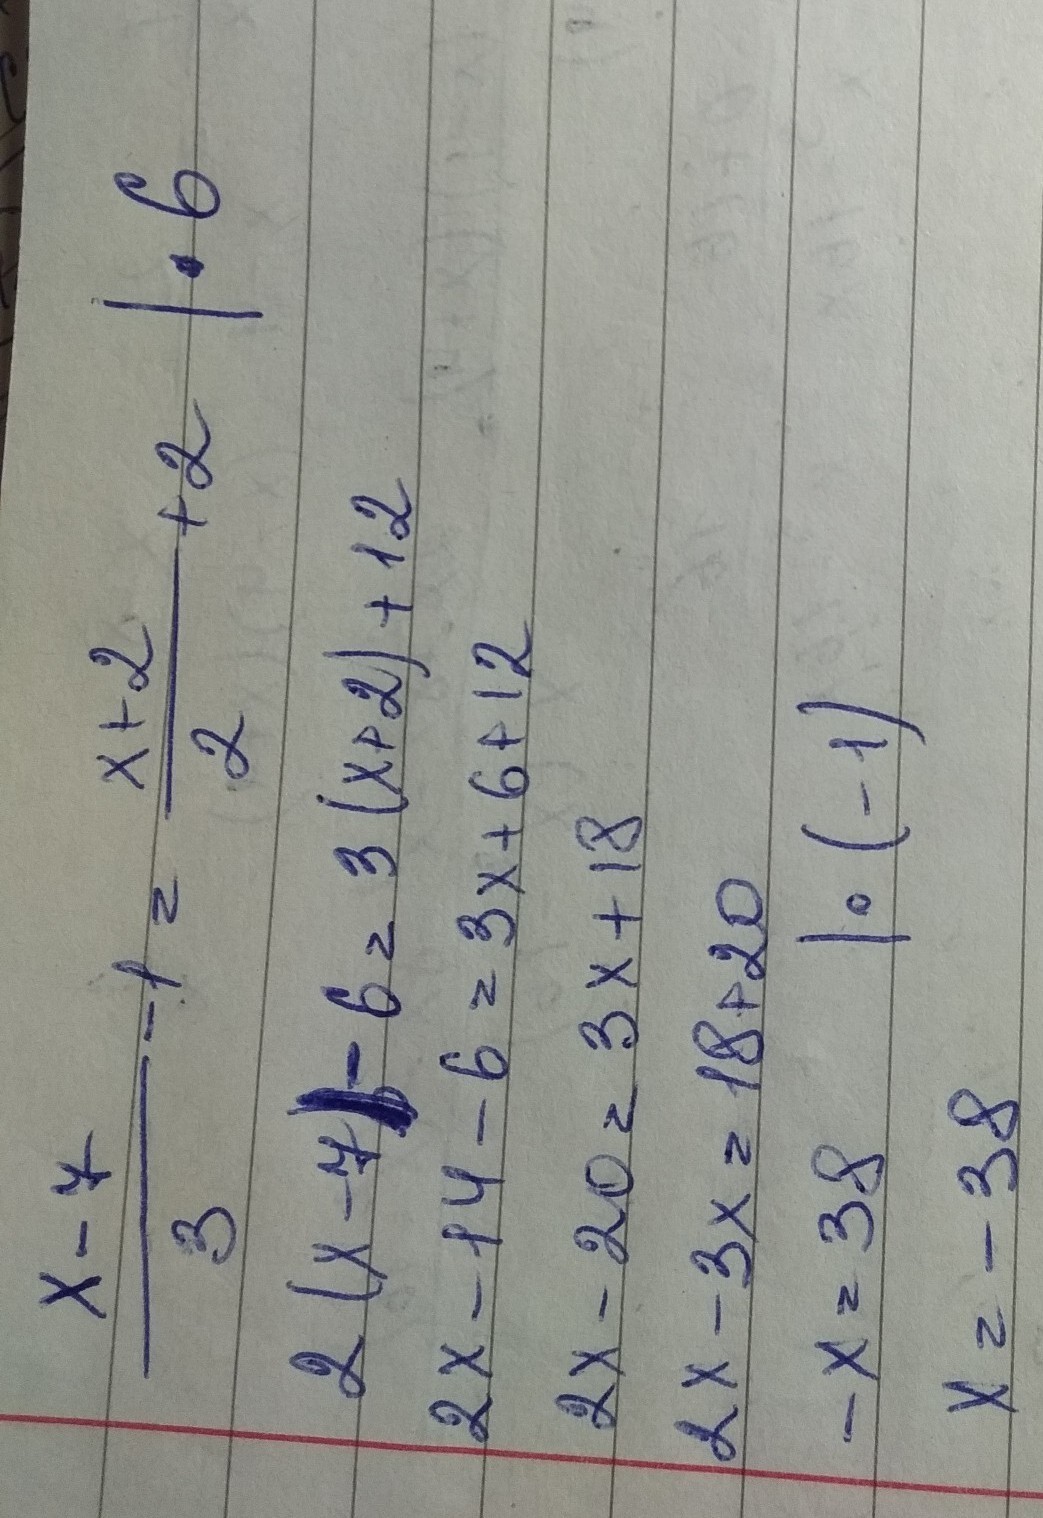 x-7/3 -1 = x+2/2 +2 |·6
2(x-7)-6=3(x+2)+12
2x-14-6=3x+6+12
2x-20=3x+18
2x-3x=18+20
-x=38 |·(-1)
x=-38